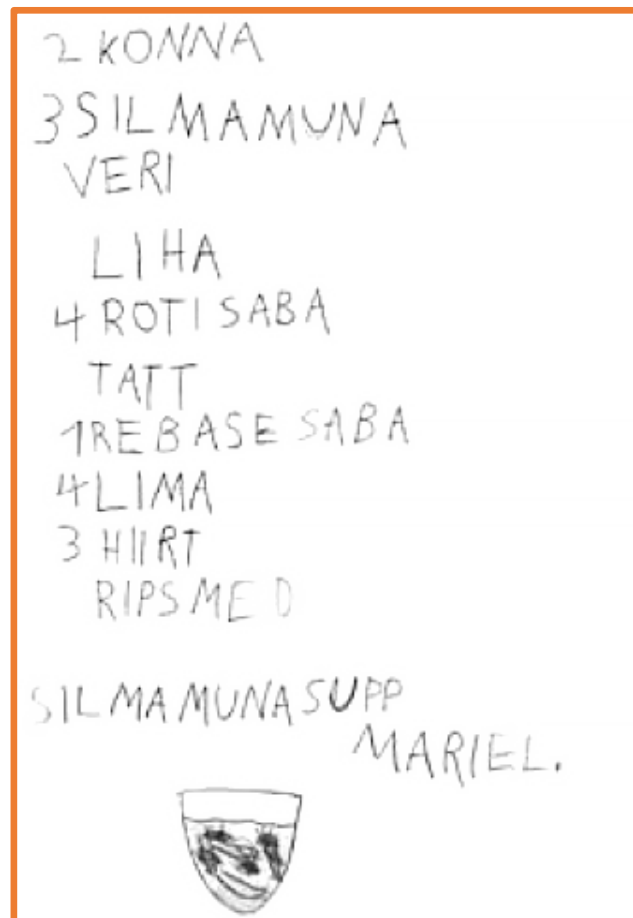 2 KONNA
3 SILMAMUNA
VERI
LIHA
4 ROTI SABA
TATT
1 REBASE SABA
4 LIMA
3 HIIRT
RIPSMED
SILMAMUNASUPP
MARIEL.